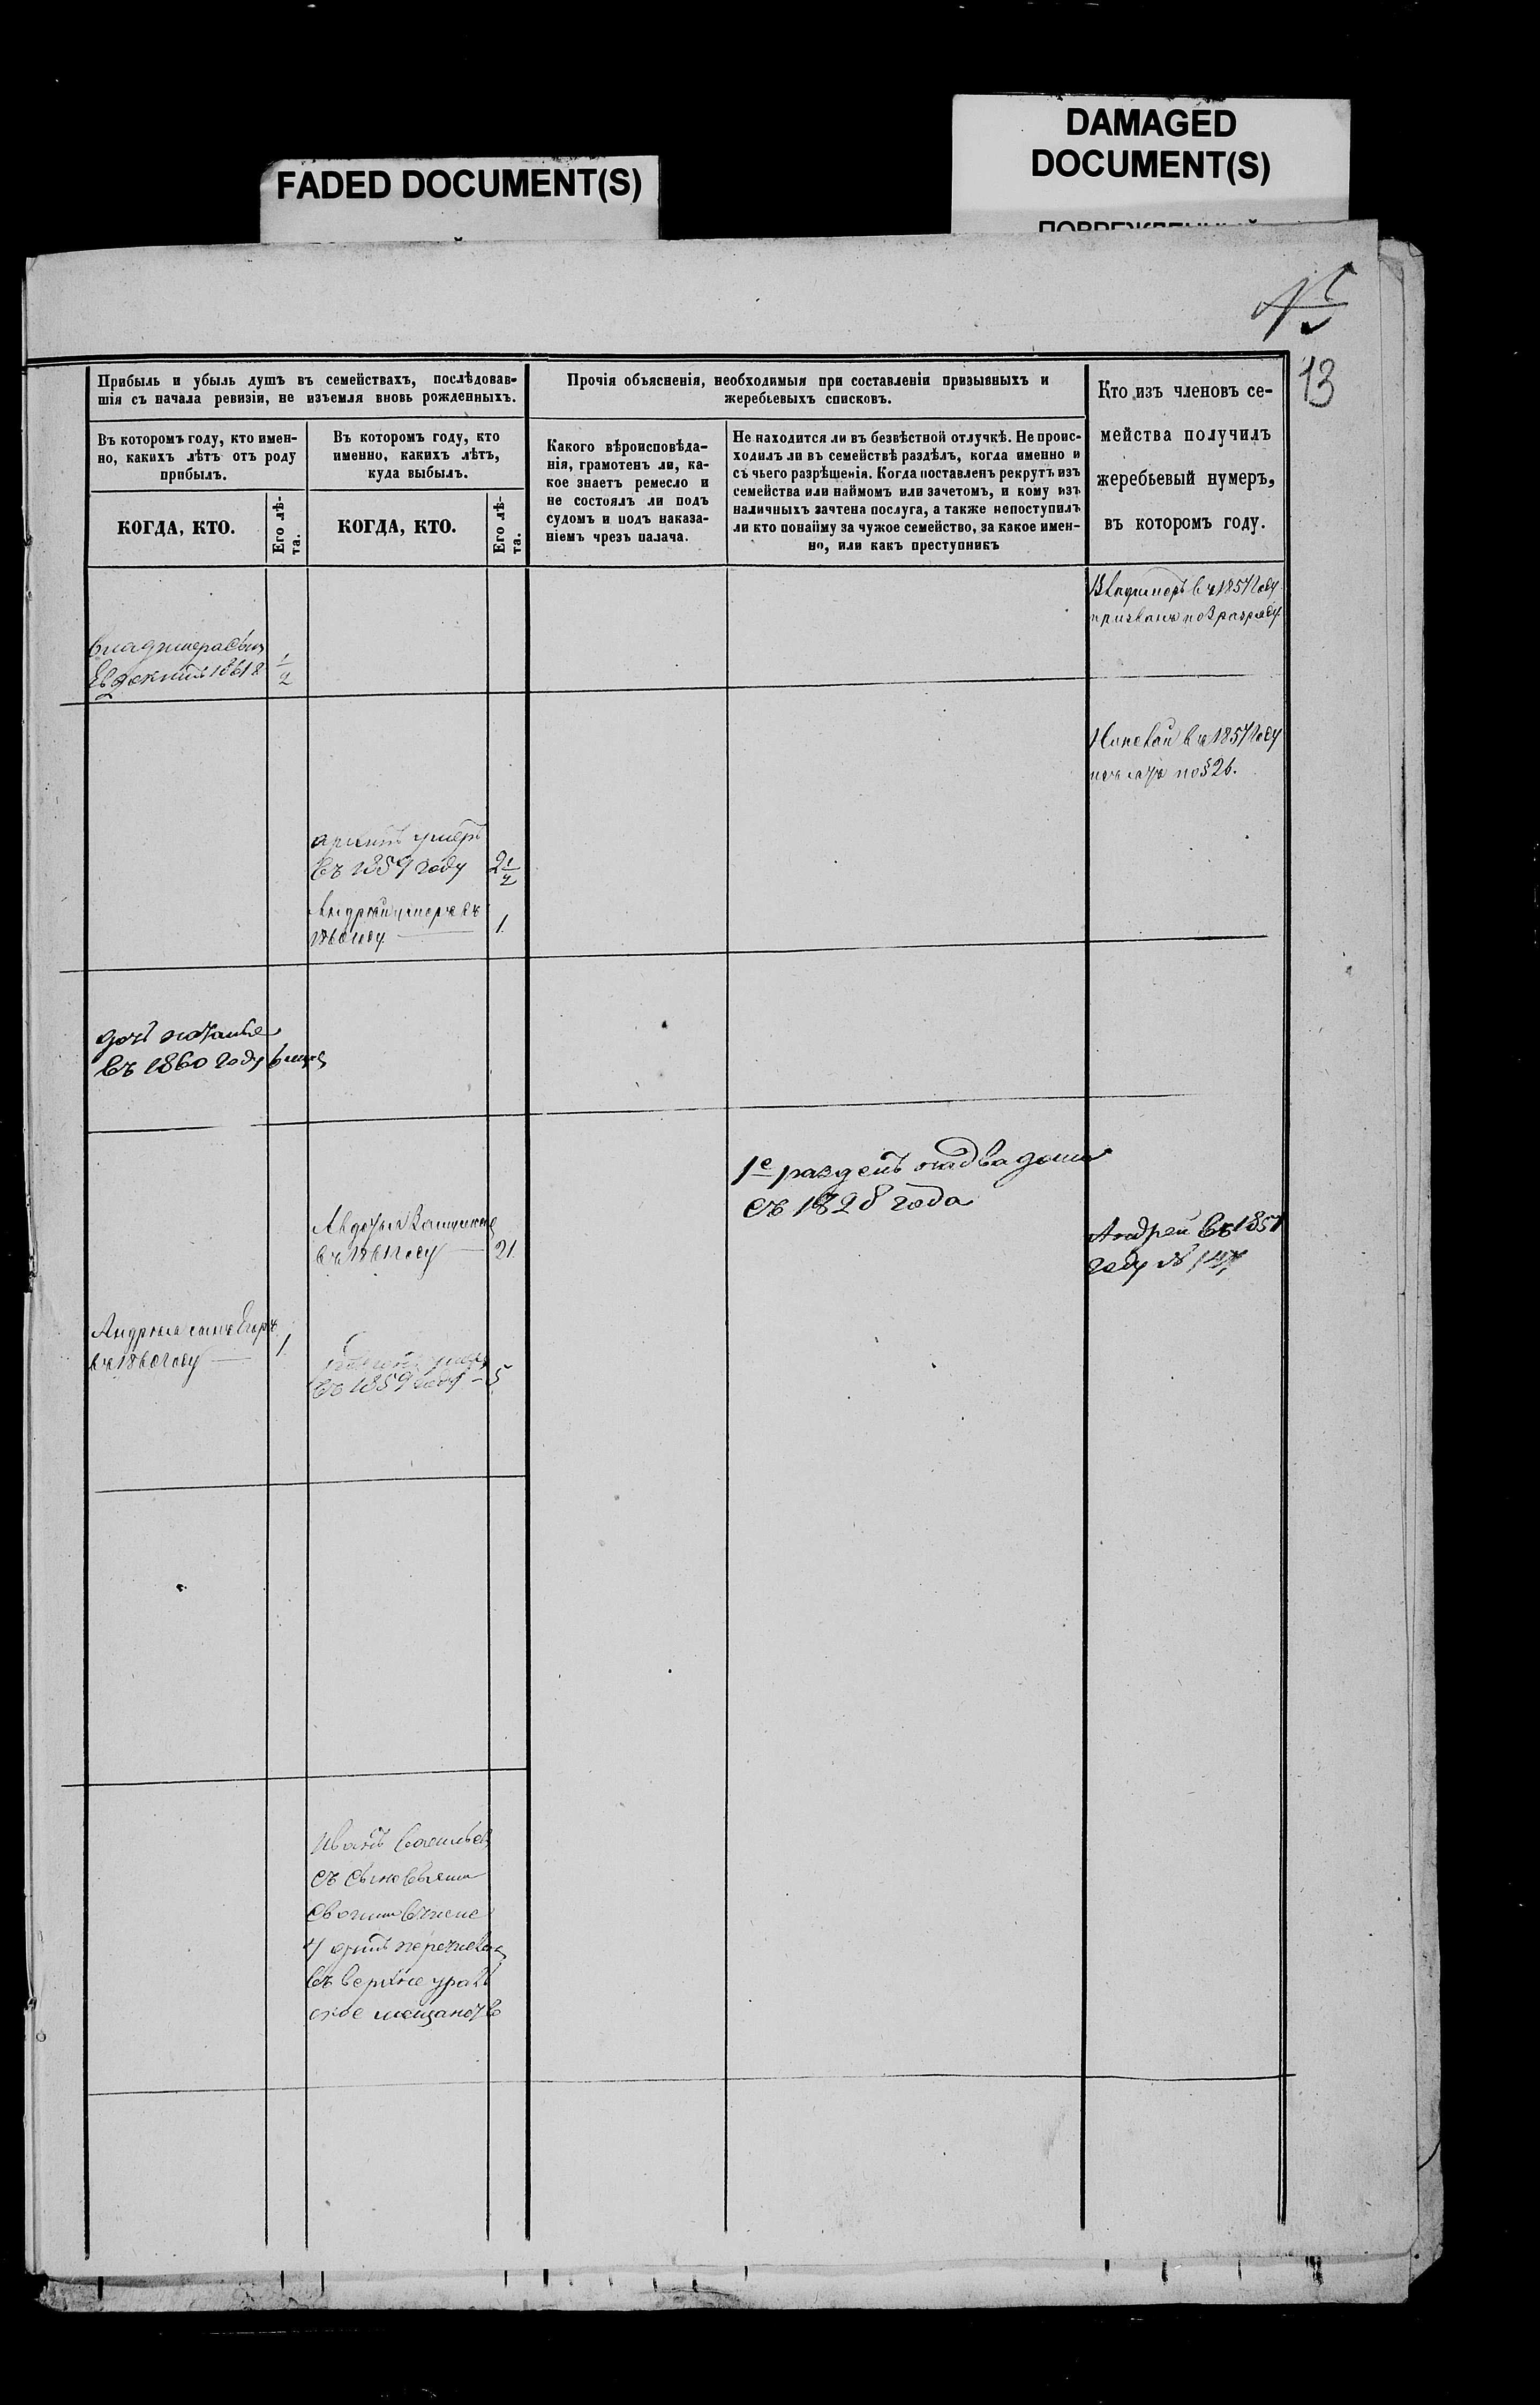 FADED DOCUMENT(S)
DAMAGED
DOCUMENT(S)
13
Прибыль и убыль душъ въ семействахъ, послѣдовав-
шія съ начала ревизіи, не изъемля вновь рожденныхъ.
Прочія объясненія, необходимыя при составленіи призывныхъ и
жеребьевыхъ списковъ.
Кто изъ членовъ се-
мейства получилъ
жеребьевый нумеръ,
въ которомъ году.
Въ которомъ году, кто имен-
но, какихъ лѣтъ отъ роду
прибылъ.
Въ которомъ году, кто
именно, какихъ лѣтъ,
куда выбылъ.
Какого вѣроисповѣда-
нія, грамотенъ ли, ка-
кое знаетъ ремесло и
не состоялъ ли подъ
судомъ и подъ наказа-
ніемъ чрезъ палача.
Не находится ли въ безвѣстной отлучкѣ. Не проис-
ходилъ ли въ семействѣ раздѣлъ, когда именно и
съ чьего разрѣшенія. Когда поставленъ рекрутъ изъ
семейства или наймомъ или зачетомъ, и кому изъ
наличныхъ зачтена послуга, а также непоступилъ
ли кто понайму за чужое семейство, за какое имен-
но, или какъ преступникъ
КОГДА, КТО.
Его лѣ-
та.
КОГДА, КТО.
Его лѣ-
та.
Владимеръ въ 1857 году
призванъ по 3 разряду
1/2
въ 1857 году
по § 26.
умеръ
въ 1859 году 2 1/2
Андрей умеръ въ
1860 году 1
дочь
въ 1860 году
1е раздѣлъ на два дома
съ 1828 года
Авдотья
въ 1861 году 21
Андрей въ 1857
году №
Андрея сынъ Егоръ
въ 1860 году 1
умеръ
въ 1859 году 5
Иванъ Васильевъ
съ сыновьями
своими въ числе
4 душъ
въ верхне урал
ское мещанство